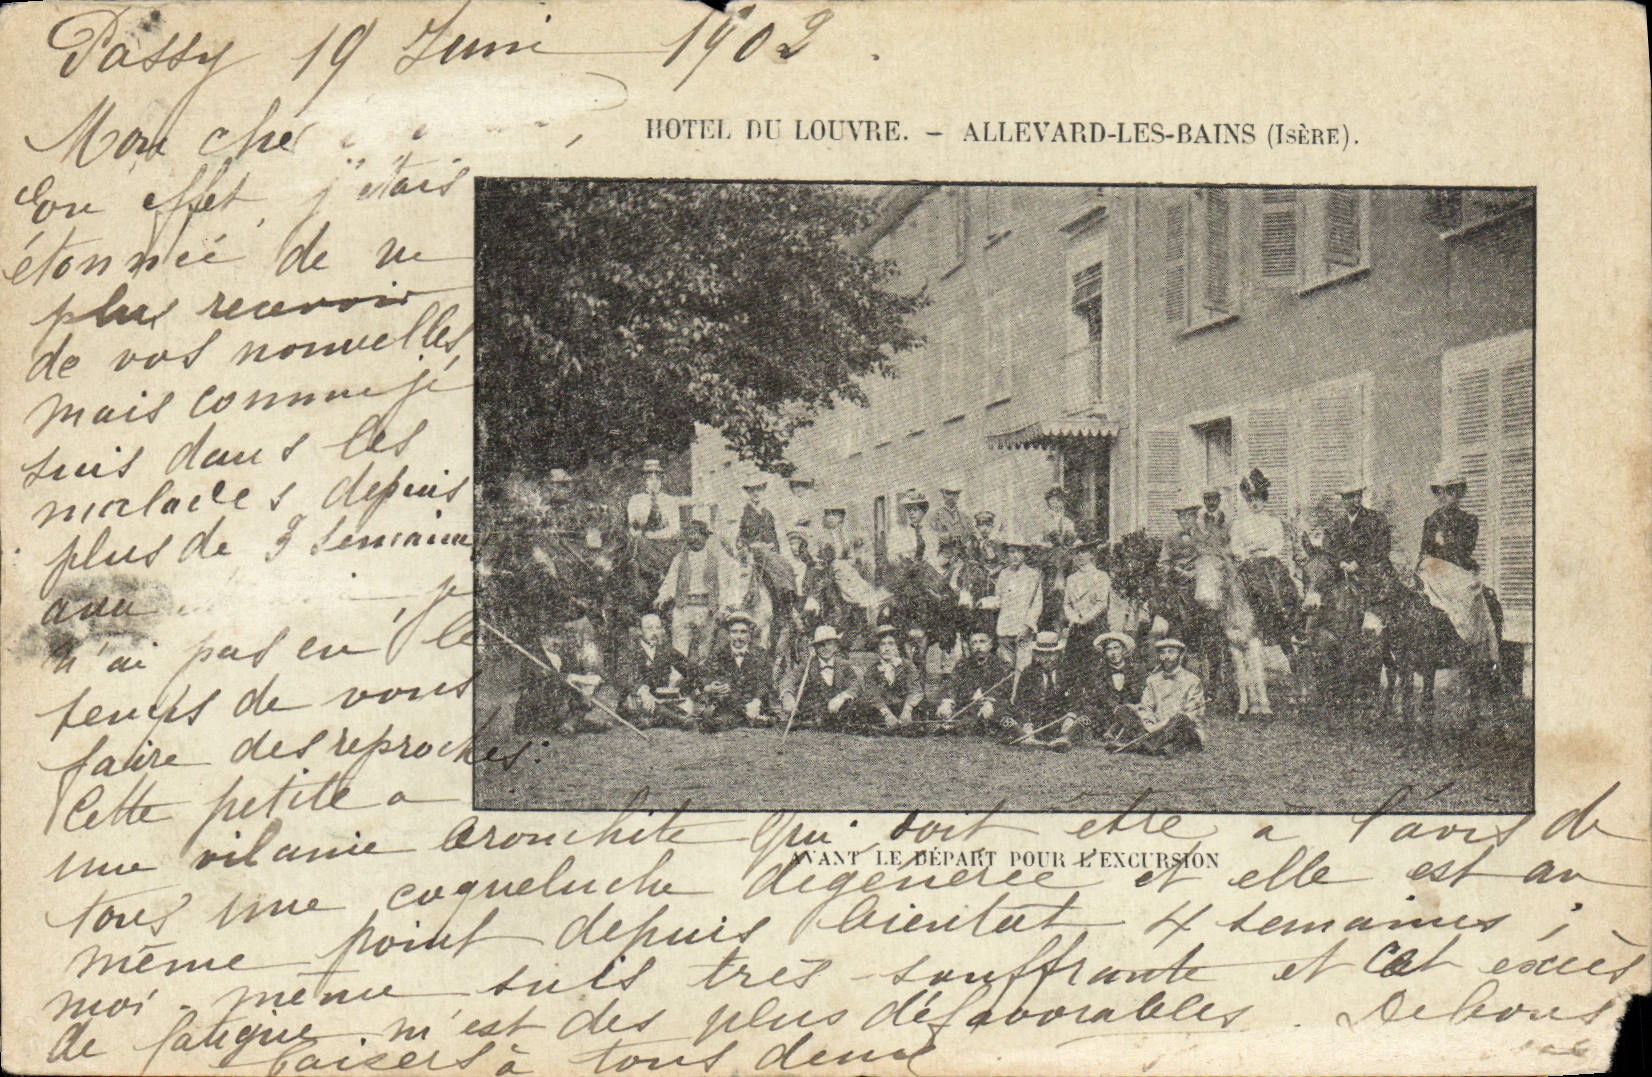 Passy 19 Juin 1902.
HOTEL DU LOUVRE. – ALLEVARD-LES-BAINS (ISÈRE).
Mon cher
En effet, j'étais
étonnée de ne
plus recevoir
de vos nouvelles,
mais comme je
suis dans les
malades depuis
plus de 3 semaines
avec , je
n'ai pas eu le
temps de vous
faire des reproches:
Cette petite a
une vilaine bronchite qui doit être à l'avis de
AVANT LE DÉPART POUR L'EXCURSION
tous une coqueluche dégénérée et elle est au
même point depuis bientôt 4 semaines;
moi-même suis très souffrante et cet excès
de fatigue m'est des plus défavorables. De bons
baisers à tous deux